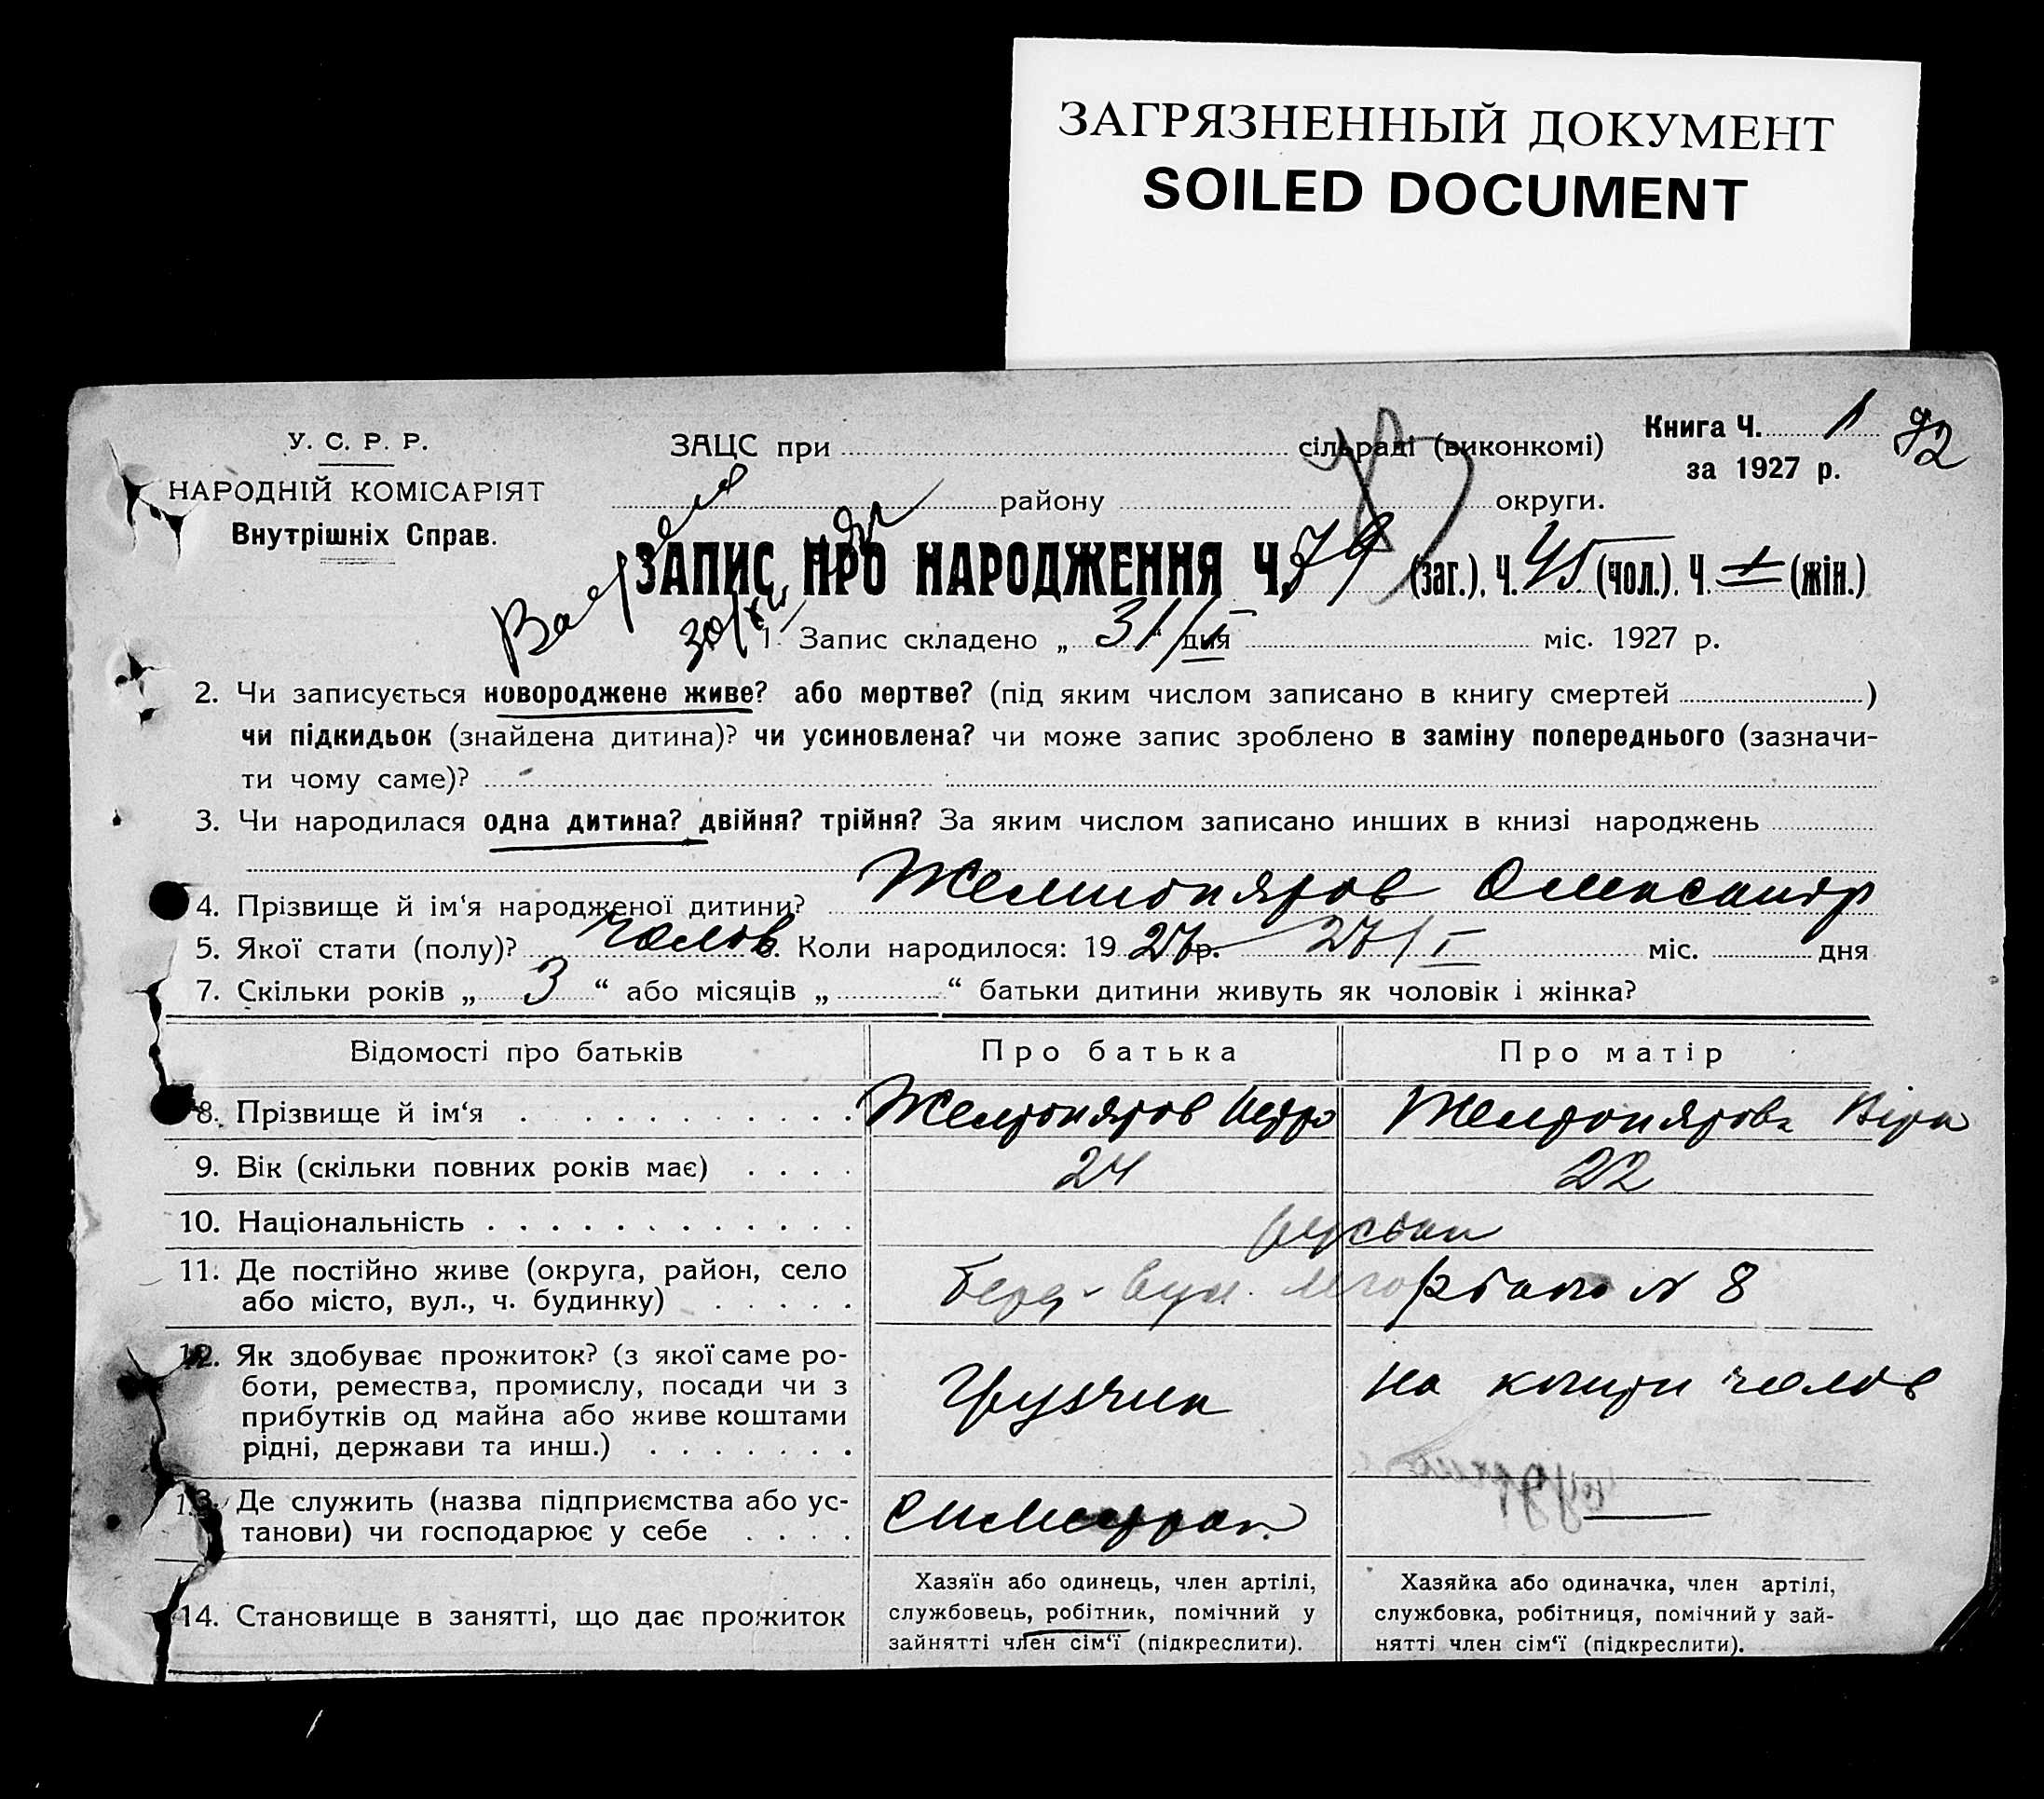 ЗАГРЯЗНЕННЫЙ ДОКУМЕНТ
SOILED DOCUMENT
У. С. Р. Р.
НАРОДНІЙ КОМІСАРІЯТ
Внутрішніх Справ.
ЗАЦС при сільраді (виконкомі)
району округи.
Книга Ч. 1
за 1927 р.
92
ЗАПИС ПРО НАРОДЖЕННЯ Ч. 79 (заг.), Ч. 45 (чол.), Ч. (жін.)
1. Запис складено „ 31/I “ дня міс. 1927 р.
2. Чи записується новороджене живе? або мертве? (під яким числом записано в книгу смертей )
чи підкидьок (знайдена дитина)? чи усиновлена? чи може запис зроблено в заміну попереднього (зазначи-
ти чому саме)?
3. Чи народилася одна дитина? двійня? трійня? За яким числом записано инших в книзі народжень
4. Прізвище й ім‘я народженої дитини? Олександр
5. Якої стати (полу)? Чолов 6. Коли народилося: 19 27 р. 27/I міс. дня
7. Скільки років „ 3 “ або місяців „ “ батьки дитини живуть як чоловік і жінка?
Відомості про батьків Про батька Про матір
8. Прізвище й ім‘я Петро Віра
9. Вік (скільки повних років має) 24 22
10. Національність
11. Де постійно живе (округа, район, село
або місто, вул., ч. будинку) № 8
12. Як здобуває прожиток? (з якої саме ро-
боти, ремества, промислу, посади чи з
прибутків од майна або живе коштами
рідні, держави та инш.) Грузчик на кошти чолов
13. Де служить (назва підприємства або ус-
танови) чи господарює у себе —
14. Становище в занятті, що дає прожиток
Хазяїн або одинець, член артілі,
службовець, робітник, помічний у
зайнятті член сім‘ї (підкреслити).
Хазяйка або одиначка, член артілі,
службовка, робітниця, помічний у зай-
нятті член сім‘ї (підкреслити).